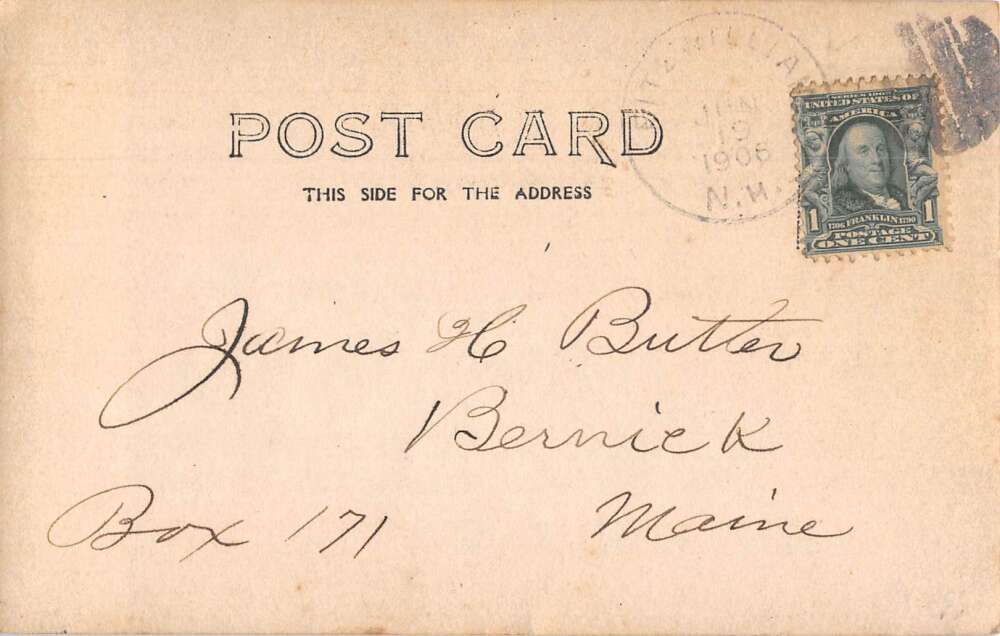 FITZWILLIAM
JUN
19
1906
N.H.
SERIES 1902
UNITED STATES OF
AMERICA
1 1
1706 FRANKLIN 1790
POSTAGE
ONE CENT
POST CARD
THIS SIDE FOR THE ADDRESS
James H Butler
Bernick
Box 171 Maine